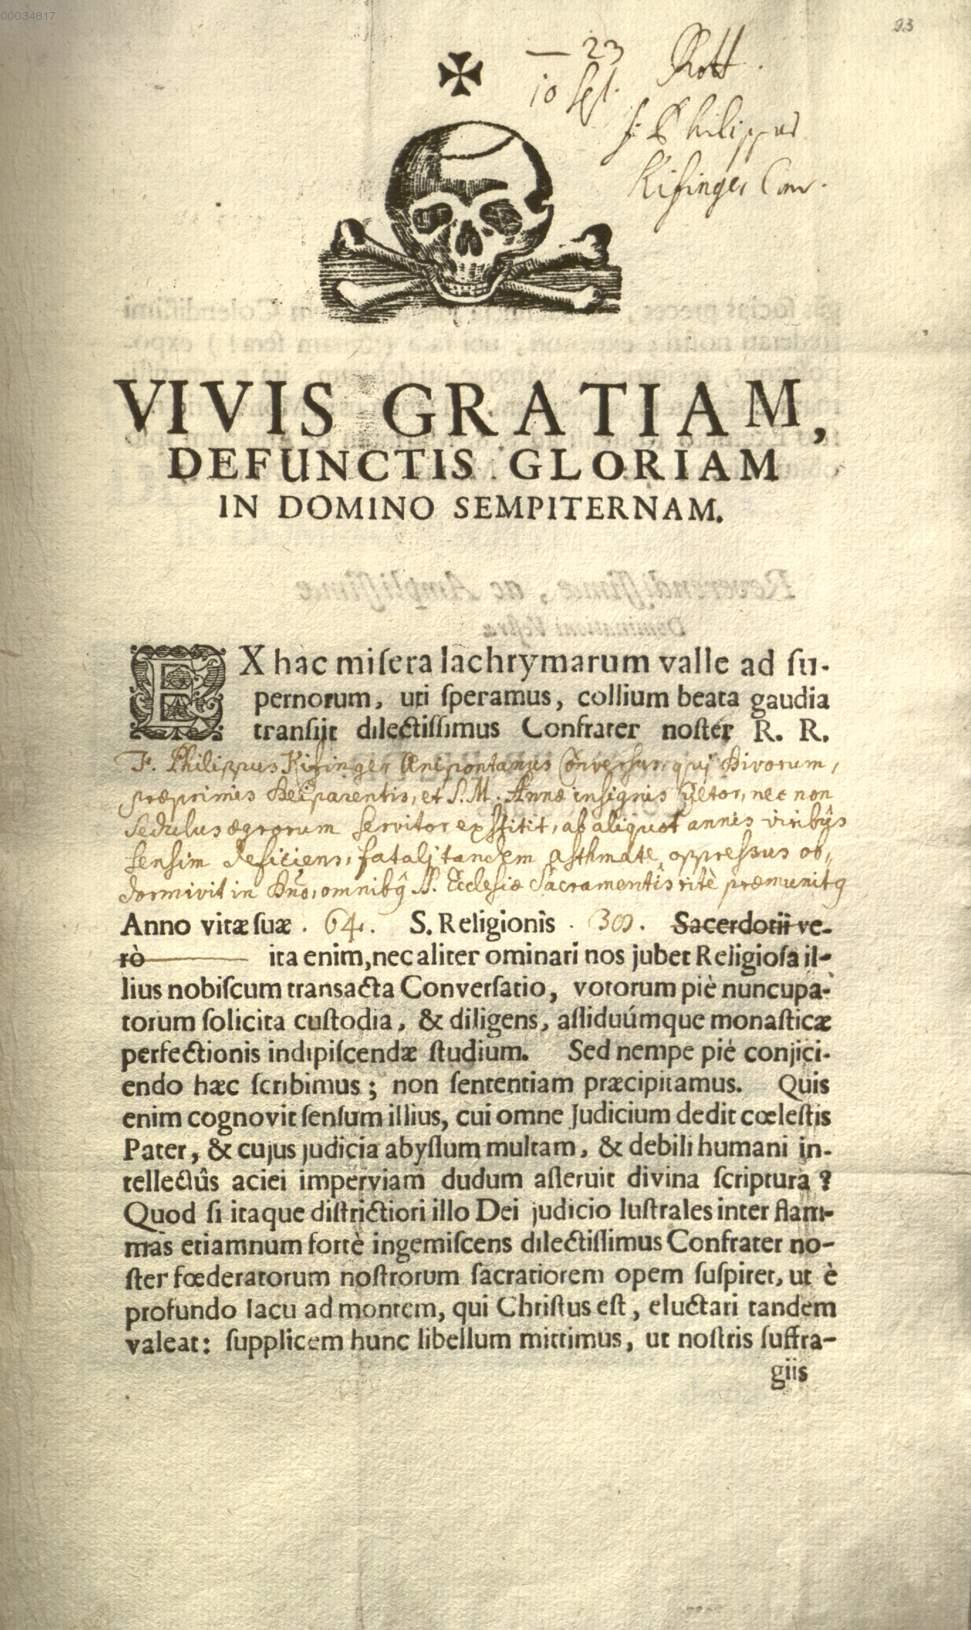 00034817
23
— 23 Rott.
10 Sept.
F. Philippus
Kisinger Conv.
VIVIS GRATIAM,
DEFUNCTIS GLORIAM
IN DOMINO SEMPITERNAM.
EX hac misera lachrymarum valle ad su-
pernorum, uti speramus, collium beata gaudia
transijt dilectissimus Confrater noster R. R.
F. Philippus Kisinger Oenipontanus Conversus, qui Divorum,
præprimis Deiparentis, et S. M. Annæ insignis Cultor, nec non
sedulus ægrorum servitor exstitit, ab aliquot annis viribus
sensim deficiens, fatali tandem asthmate oppressus ob-
dormivit in Dno, omnibus SS. Ecclesiæ Sacramentis ritè præmunitus
Anno vitæ suæ . 64. S. Religionis . 30. Sacerdotii ve-
rò ita enim, nec aliter ominari nos jubet Religiosa il-
lius nobiscum transacta Conversatio, votorum piè nuncupa-
torum solicita custodia, & diligens, assiduúmque monasticæ
perfectionis indipiscendæ studium. Sed nempe piè conjici-
endo hæc scribimus; non sententiam præcipitamus. Quis
enim cognovit sensum illius, cui omne Judicium dedit cœlestis
Pater, & cujus judicia abyssum multam, & debili humani in-
tellectûs aciei imperviam dudum asseruit divina scriptura?
Quod si itaque districtiori illo Dei judicio lustrales inter flam-
mas etiamnum fortè ingemiscens dilectissimus Confrater no-
ster fœderatorum nostrorum sacratiorem opem suspiret, ut è
profundo lacu ad montem, qui Christus est, eluctari tandem
valeat: supplicem hunc libellum mittimus, ut nostris suffra-
giis